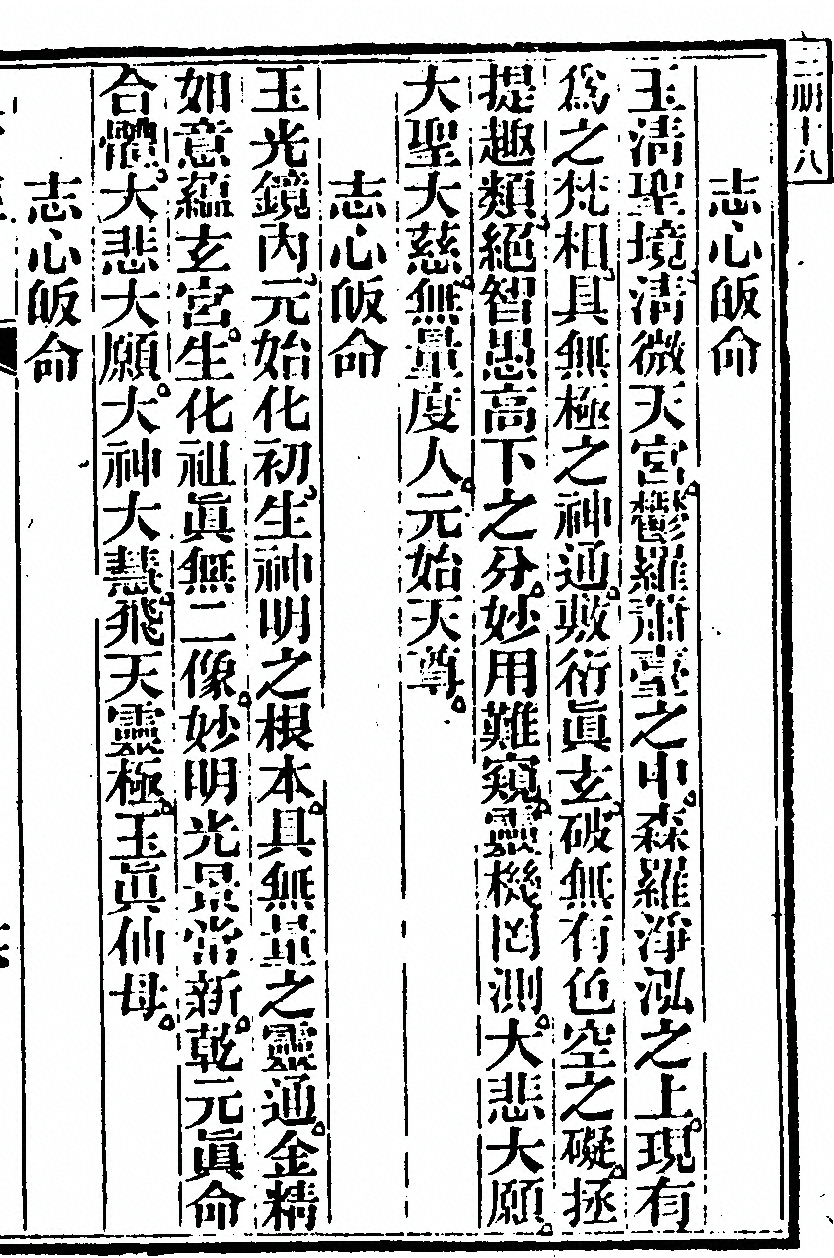 三册十八
志心皈命
玉清聖境清微天宮鬱羅蕭臺之中森羅淨泓之上現有
爲之梵相具無極之神通敷衍眞玄破無有色空之礙拯
提趣類絕智愚高下之分妙用難窺靈機罔測大悲大願
大聖大慈無量度人元始天尊
志心皈命
玉光鏡內元始化初生神明之根本具無量之靈通金精
如意蘊玄宮生化祖眞無二像妙明光景常新乾元眞命
合體大悲大願大神大慧飛天靈極玉眞仙母
志心皈命